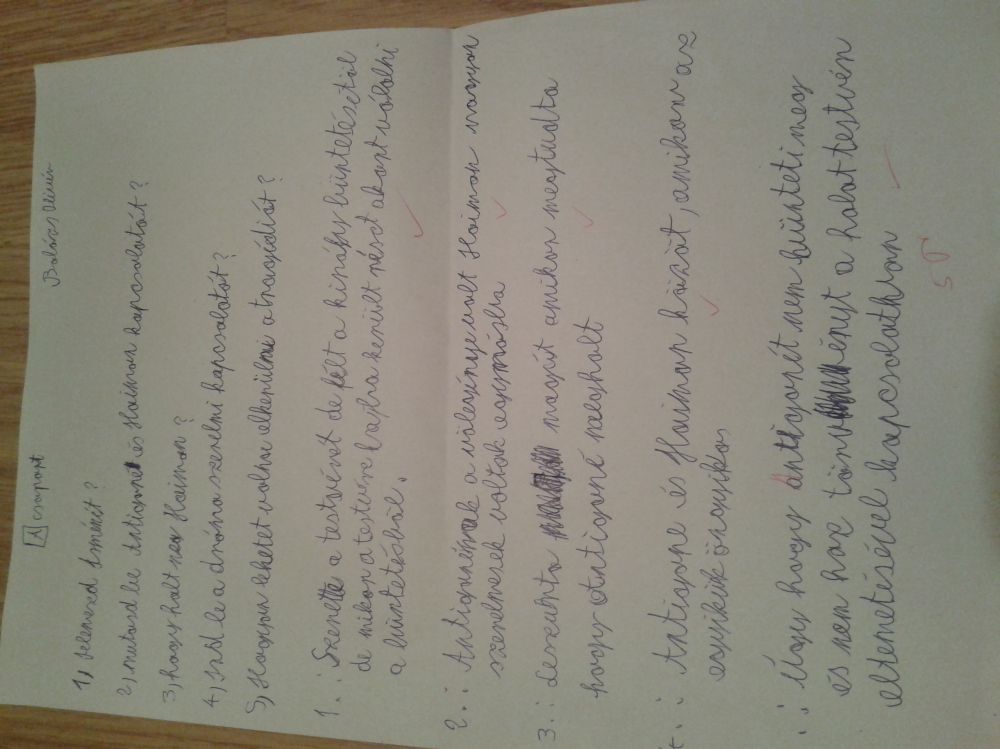 A csoport Balázs
1) Jellemezd Isménét?
2) mutasd be Antigoné és Haimon kapcsolatát?
3) hogy halt meg Haimon?
4) írd le a dráma szerelmi kapcsolatát?
5) Hogyan lehetet volna elkerülni a tragédiát?
1.: Szerette a testvérét de félt a király büntetésétöl
de mikor a testvére bajba került részt akart válalni
a büntetésböl.
2.: Antigonénak a völegénye volt Haimon nagyon
szerelmesek voltak egymásba
3.: leszúrta magát amikor megtudta
hogy Antigoné meghalt
4.: Antigone és Haimon közöt, amikor az
egyikük öngyilkos
.: Úgy hogy Antigonét nem bünteti meg
és nem hoz törvényt a halat testvén
eltemetésével kapcsolatban
5